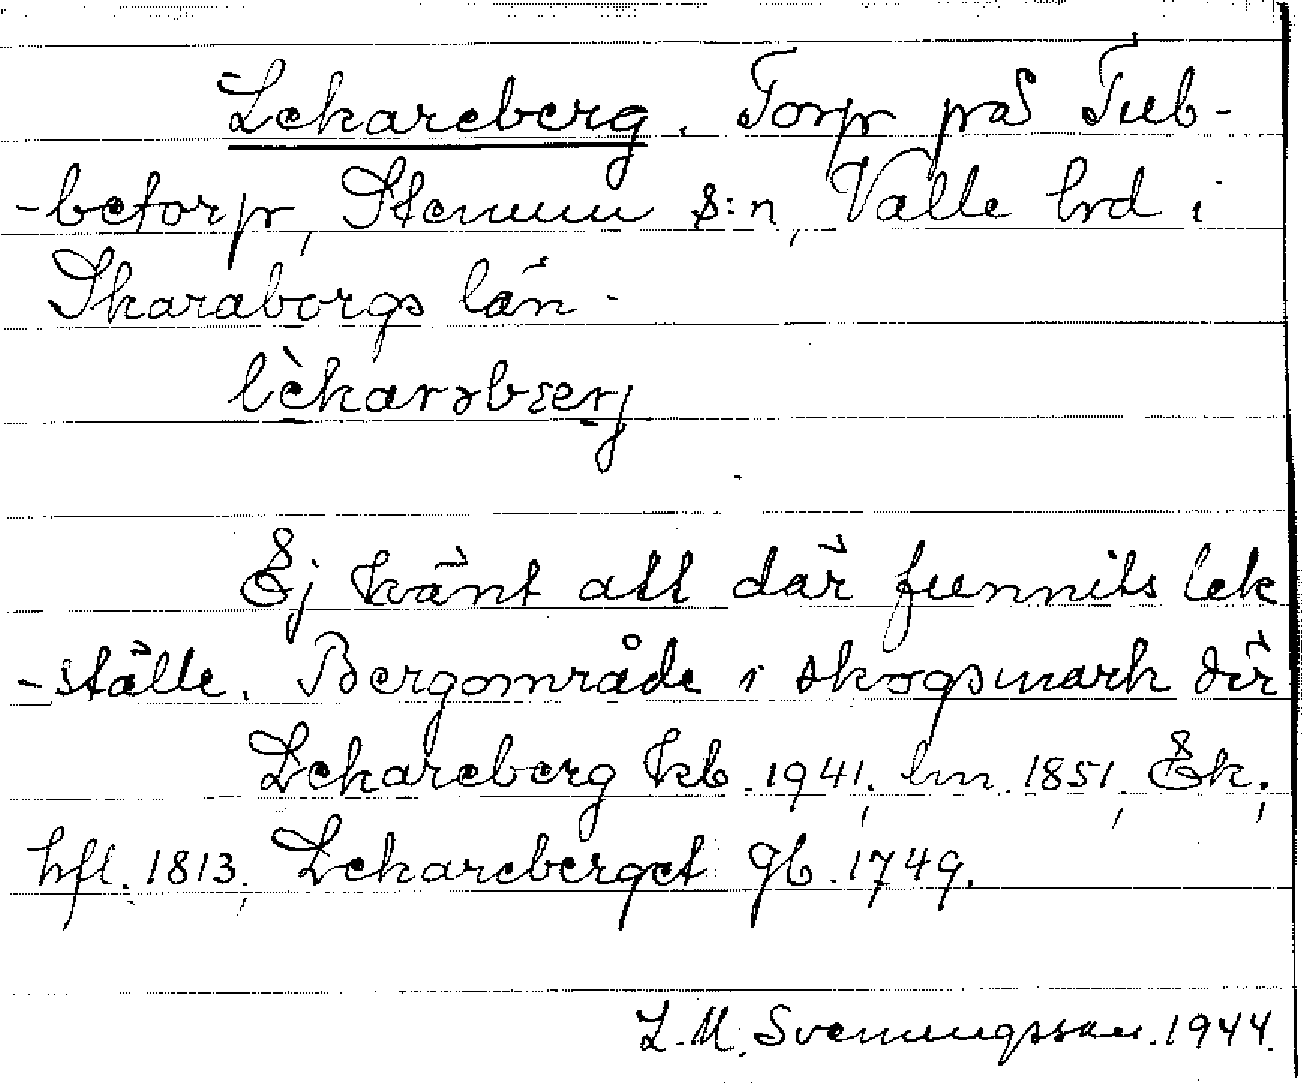 Lekareberg. Torp på Tub-
-betorp, Stenum s:n, Valle hrd i
Skaraborgs län.
lèkarəbærj
Ej känt att där funnits lek
-ställe. Bergområde i skogsmark där
Lekareberg kb. 1941, lm. 1851, Ek,
hfl. 1813, Lekareberget gb. 1749.
L. M. Svenungsson. 1944.